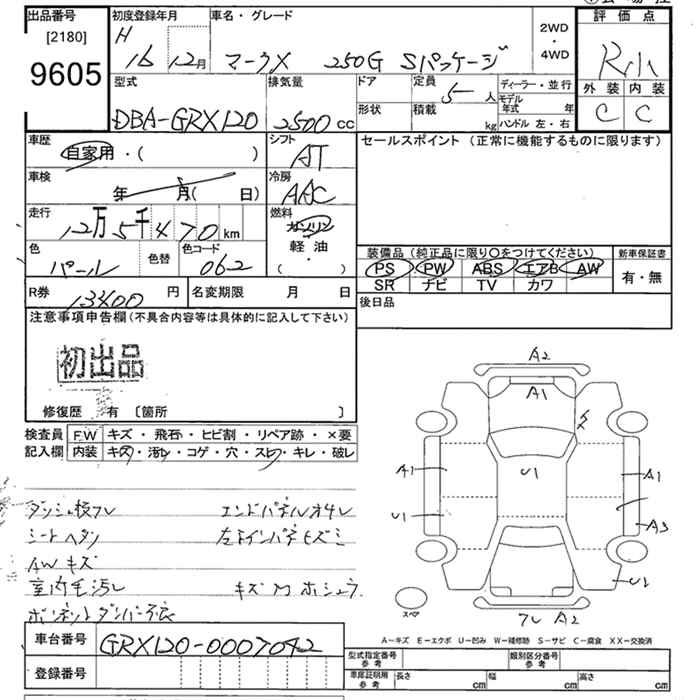 出品番号 初度登録年月 車名・グレード 2WD・4WD 評価点
[2180] H
9605 16 12月 マークX 250G Sパッケージ
型式 排気量 ドア 定員 5人 ディーラー・並行 外装 内装
DBA-GRX120 2500 cc 形状 積載 kg モデル年式 年 C C
ハンドル 左・右
車歴 シフト セールスポイント (正常に機能するものに限ります)
自家用・( ) AT
車検 冷房
年 月( 日) AAC
走行 燃料
12万5千470km ガソリン
色 色替 色コード 軽・油 装備品(純正品に限り〇をつけてください) 新車保証書
パール 062 ( ・ ) PS PW ABS エアB AW 有・無
SR ナビ TV カワ
R券 13400 円 名変期限 月 日 後日品
注意事項申告欄(不具合内容等は具体的に記入して下さい)
初出品
修復歴 有 〔箇所 〕
検査員 F.W キズ・飛石・ヒビ割・リペア跡・×要
記入欄 内装 キズ・汚レ・コゲ・穴・スレ・キレ・破レ
シートヘタリ
AWキズ
室内毛汚レ
A2
A1
A1 U1 A1
U1 A3
U1
スペア A2
A-キズ E-エクボ U-凹み W-補修跡 S-サビ C-腐食 XX-交換済
車台番号 GRX120-0007042
型式指定番号 参考 類別区分番号 参考
登録番号 車庫証明用 参考 長さ cm 幅 cm 高さ cm